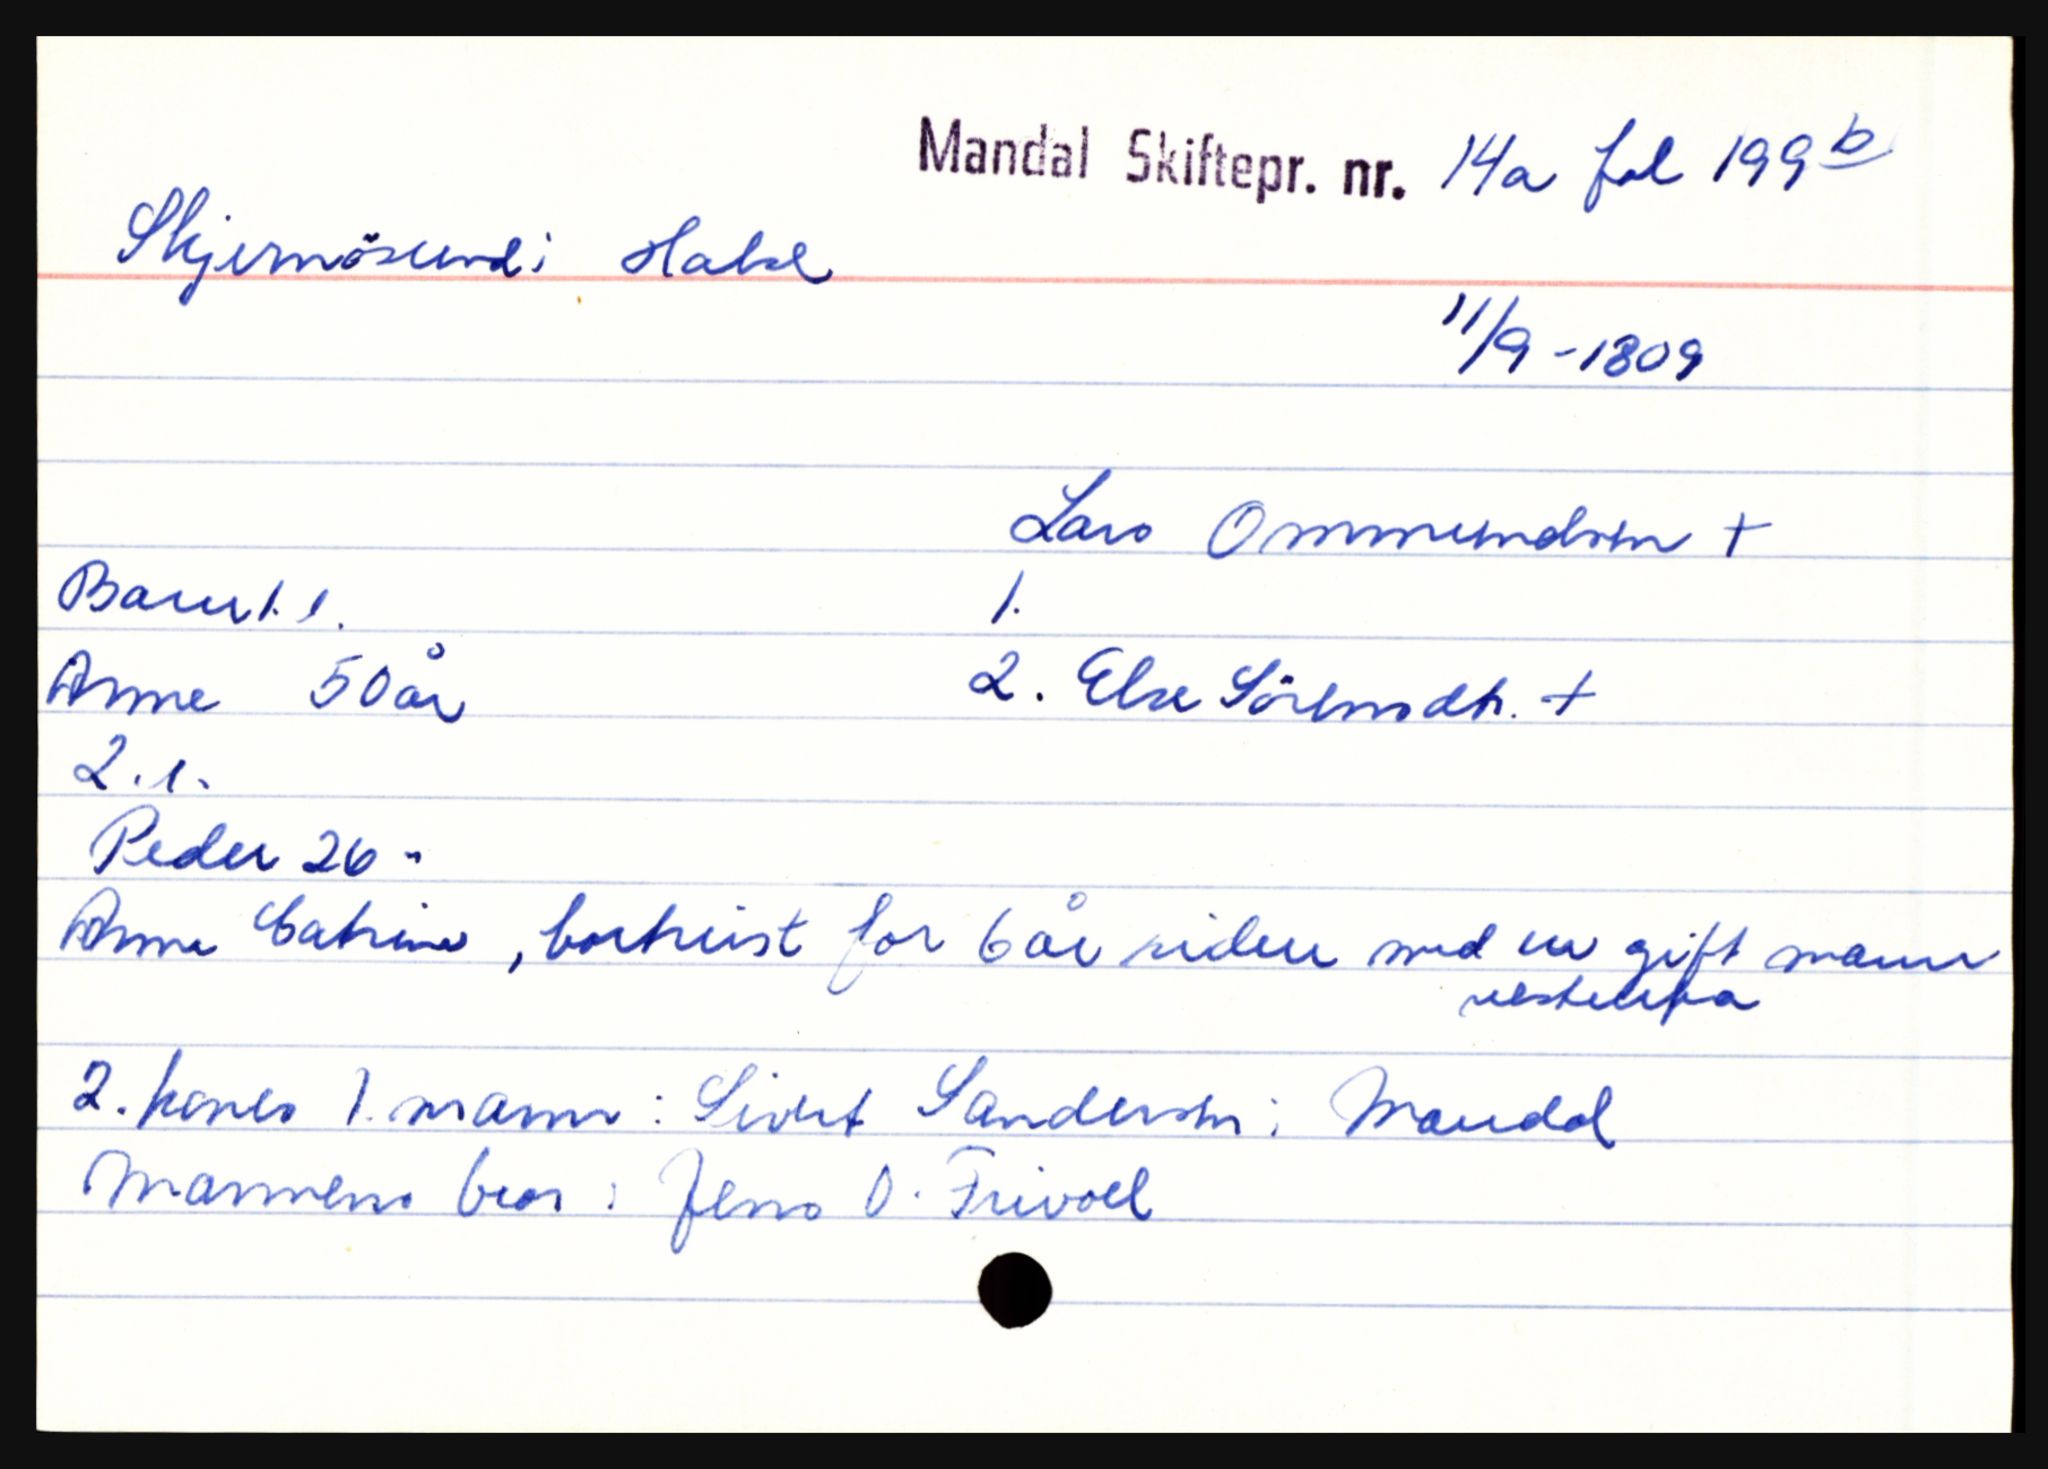 Mandal Skiftepr. nr. 14a fol 199 b
Skjernösund i Halse
11/9 - 1809
Lars Ommundsen +
Barn 1. 1. 1.
Anne 50 år 2. Else Sörensdtr. +
2. 1.
Peder 26 "
Anne Catrine, bortreist for 6 år siden med en gift mann
vestenfra
2. kones 1. mann : Sivert Sandersen i Mandal
Mannens bror : Jens O. Trivoll